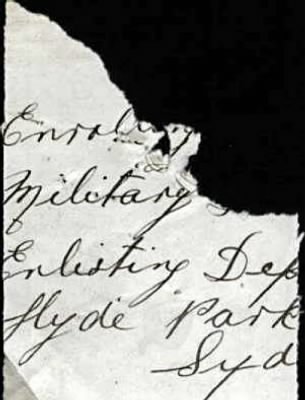 Enrolling
Military
&
Enlisting Dep
Hyde Park
Syd